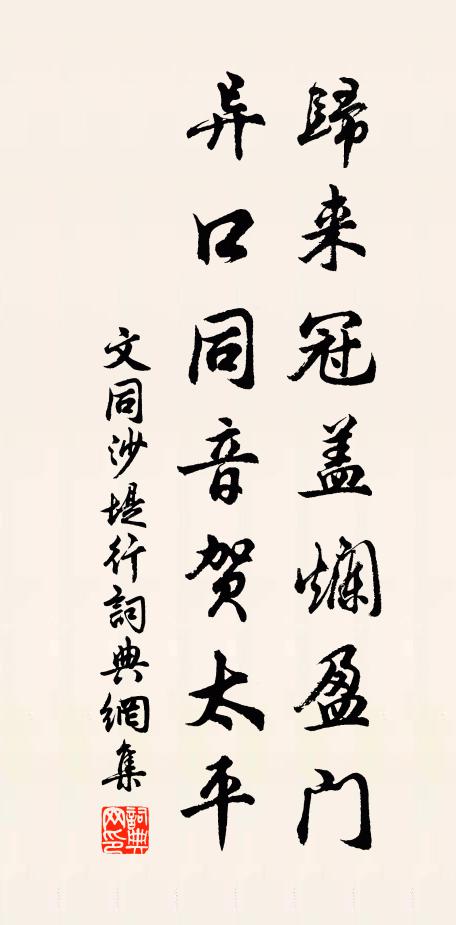 歸来冠盖爛盈門
异口同音贺太平
文同沙堤行詞典網集
詞典网印